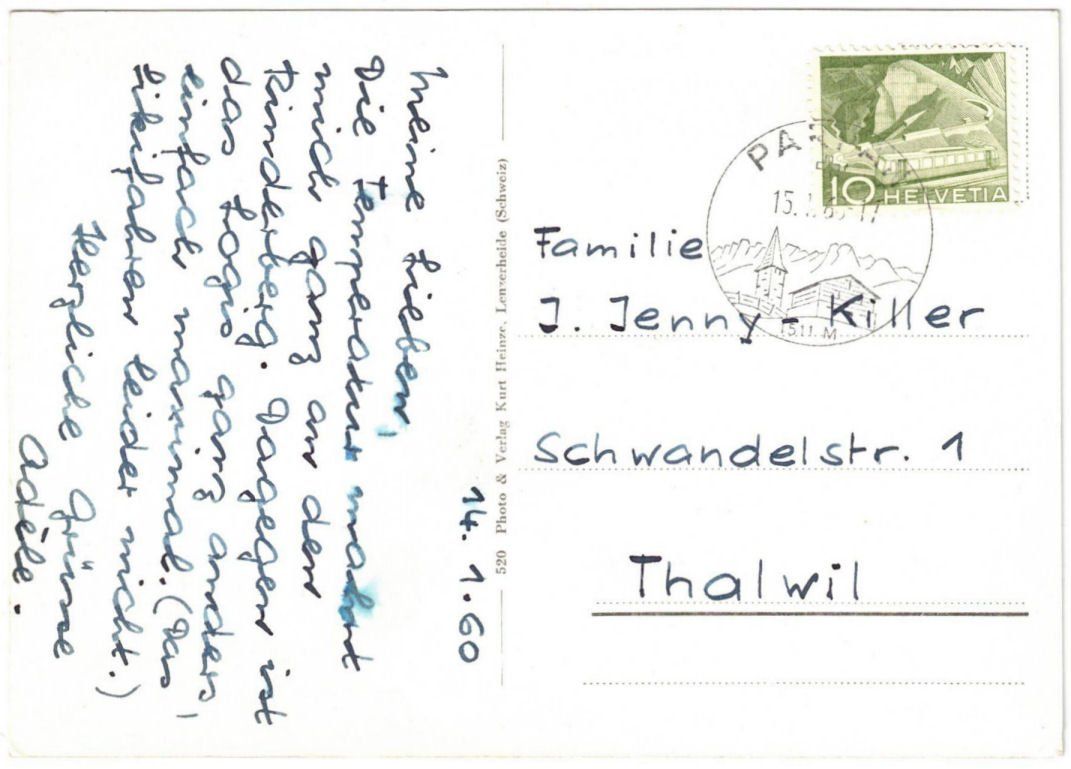 14. 1. 60
Meine Lieben,
Die Temperatur mahnt
mich ganz an den
Rinderberg. Dagegen ist
das Logis ganz anders,
einfach maximal. (Das
Skifahren leider nicht.)
Herzliche Grüsse
Adèle.
520 Photo & Verlag Kurt Heinze, Lenzerheide (Schweiz)
10 HELVETIA
1511 M
Familie
J. Jenny-Killer
Schwandelstr. 1
Thalwil